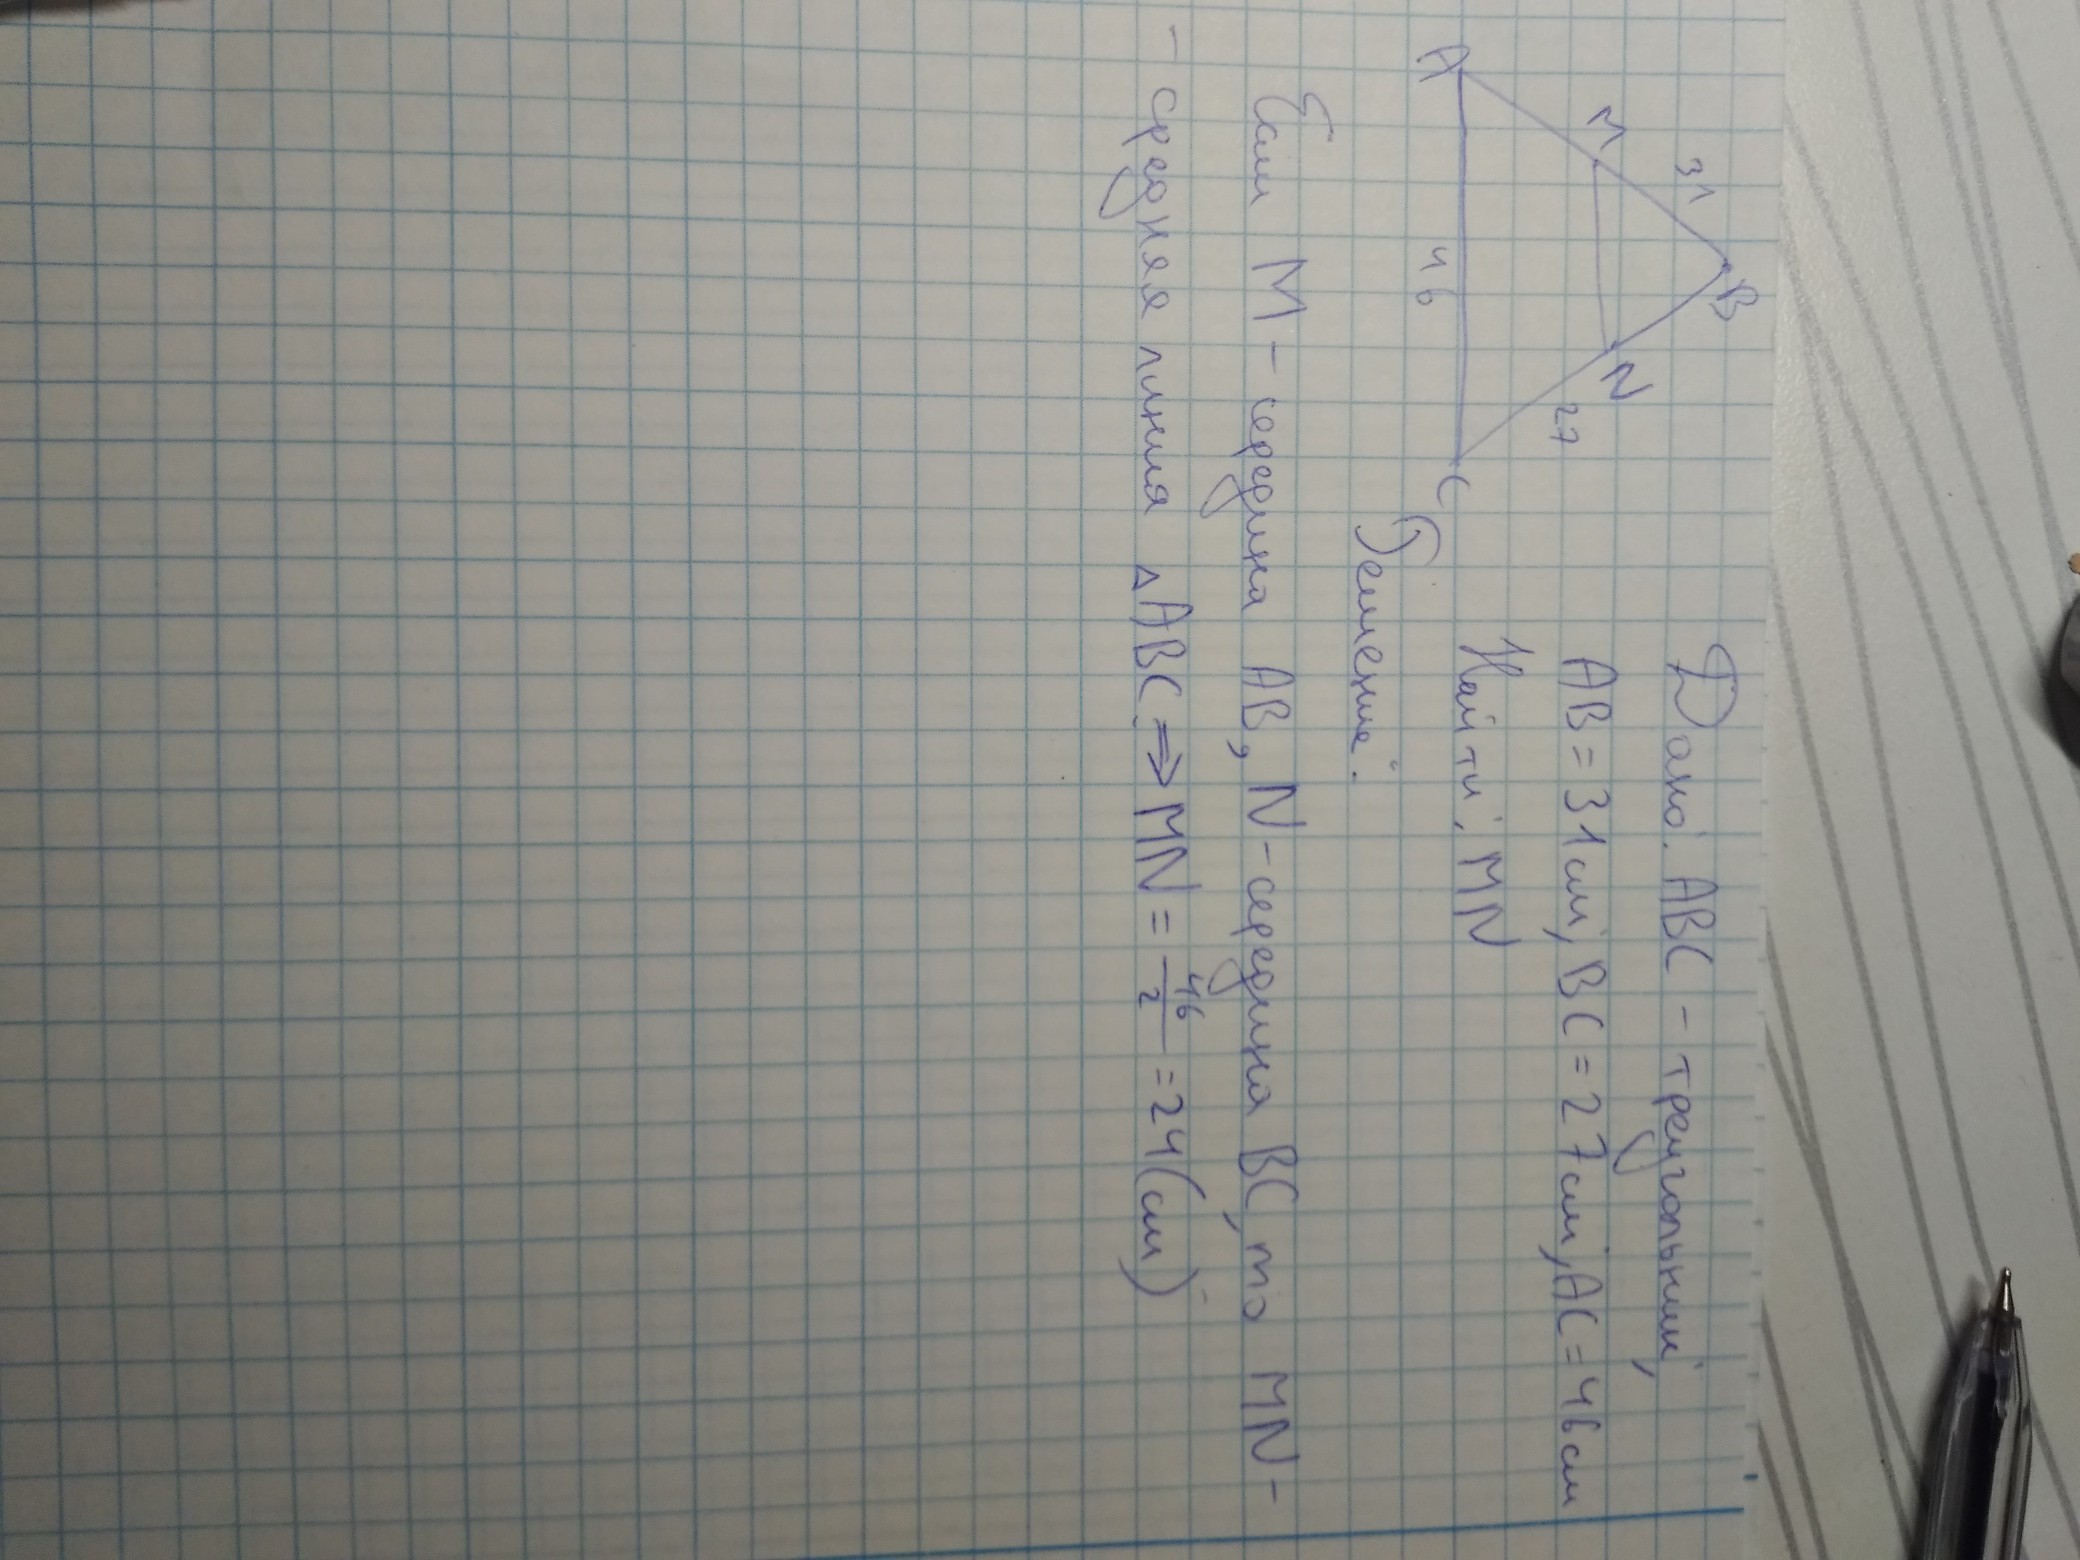 B
31
M
N
27
A
46
C
Дано: ABC - треугольник,
AB = 31 см, BC = 27 см, AC = 46 см
Найти: MN
Решение:
Если M - середина AB, N - середина BC, то MN -
- средняя линия △ABC ⇒ MN = 46/2 = 24 (см)